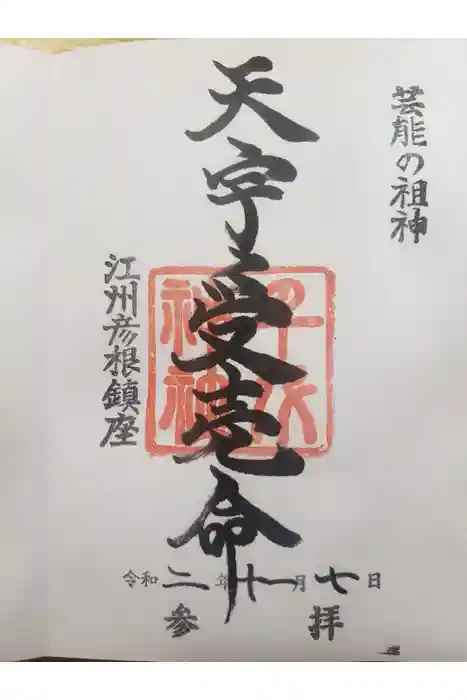 芸能の祖神
天宇受売命
江州彦根鎮座
千代
神社
令和二年十一月七日
参拝